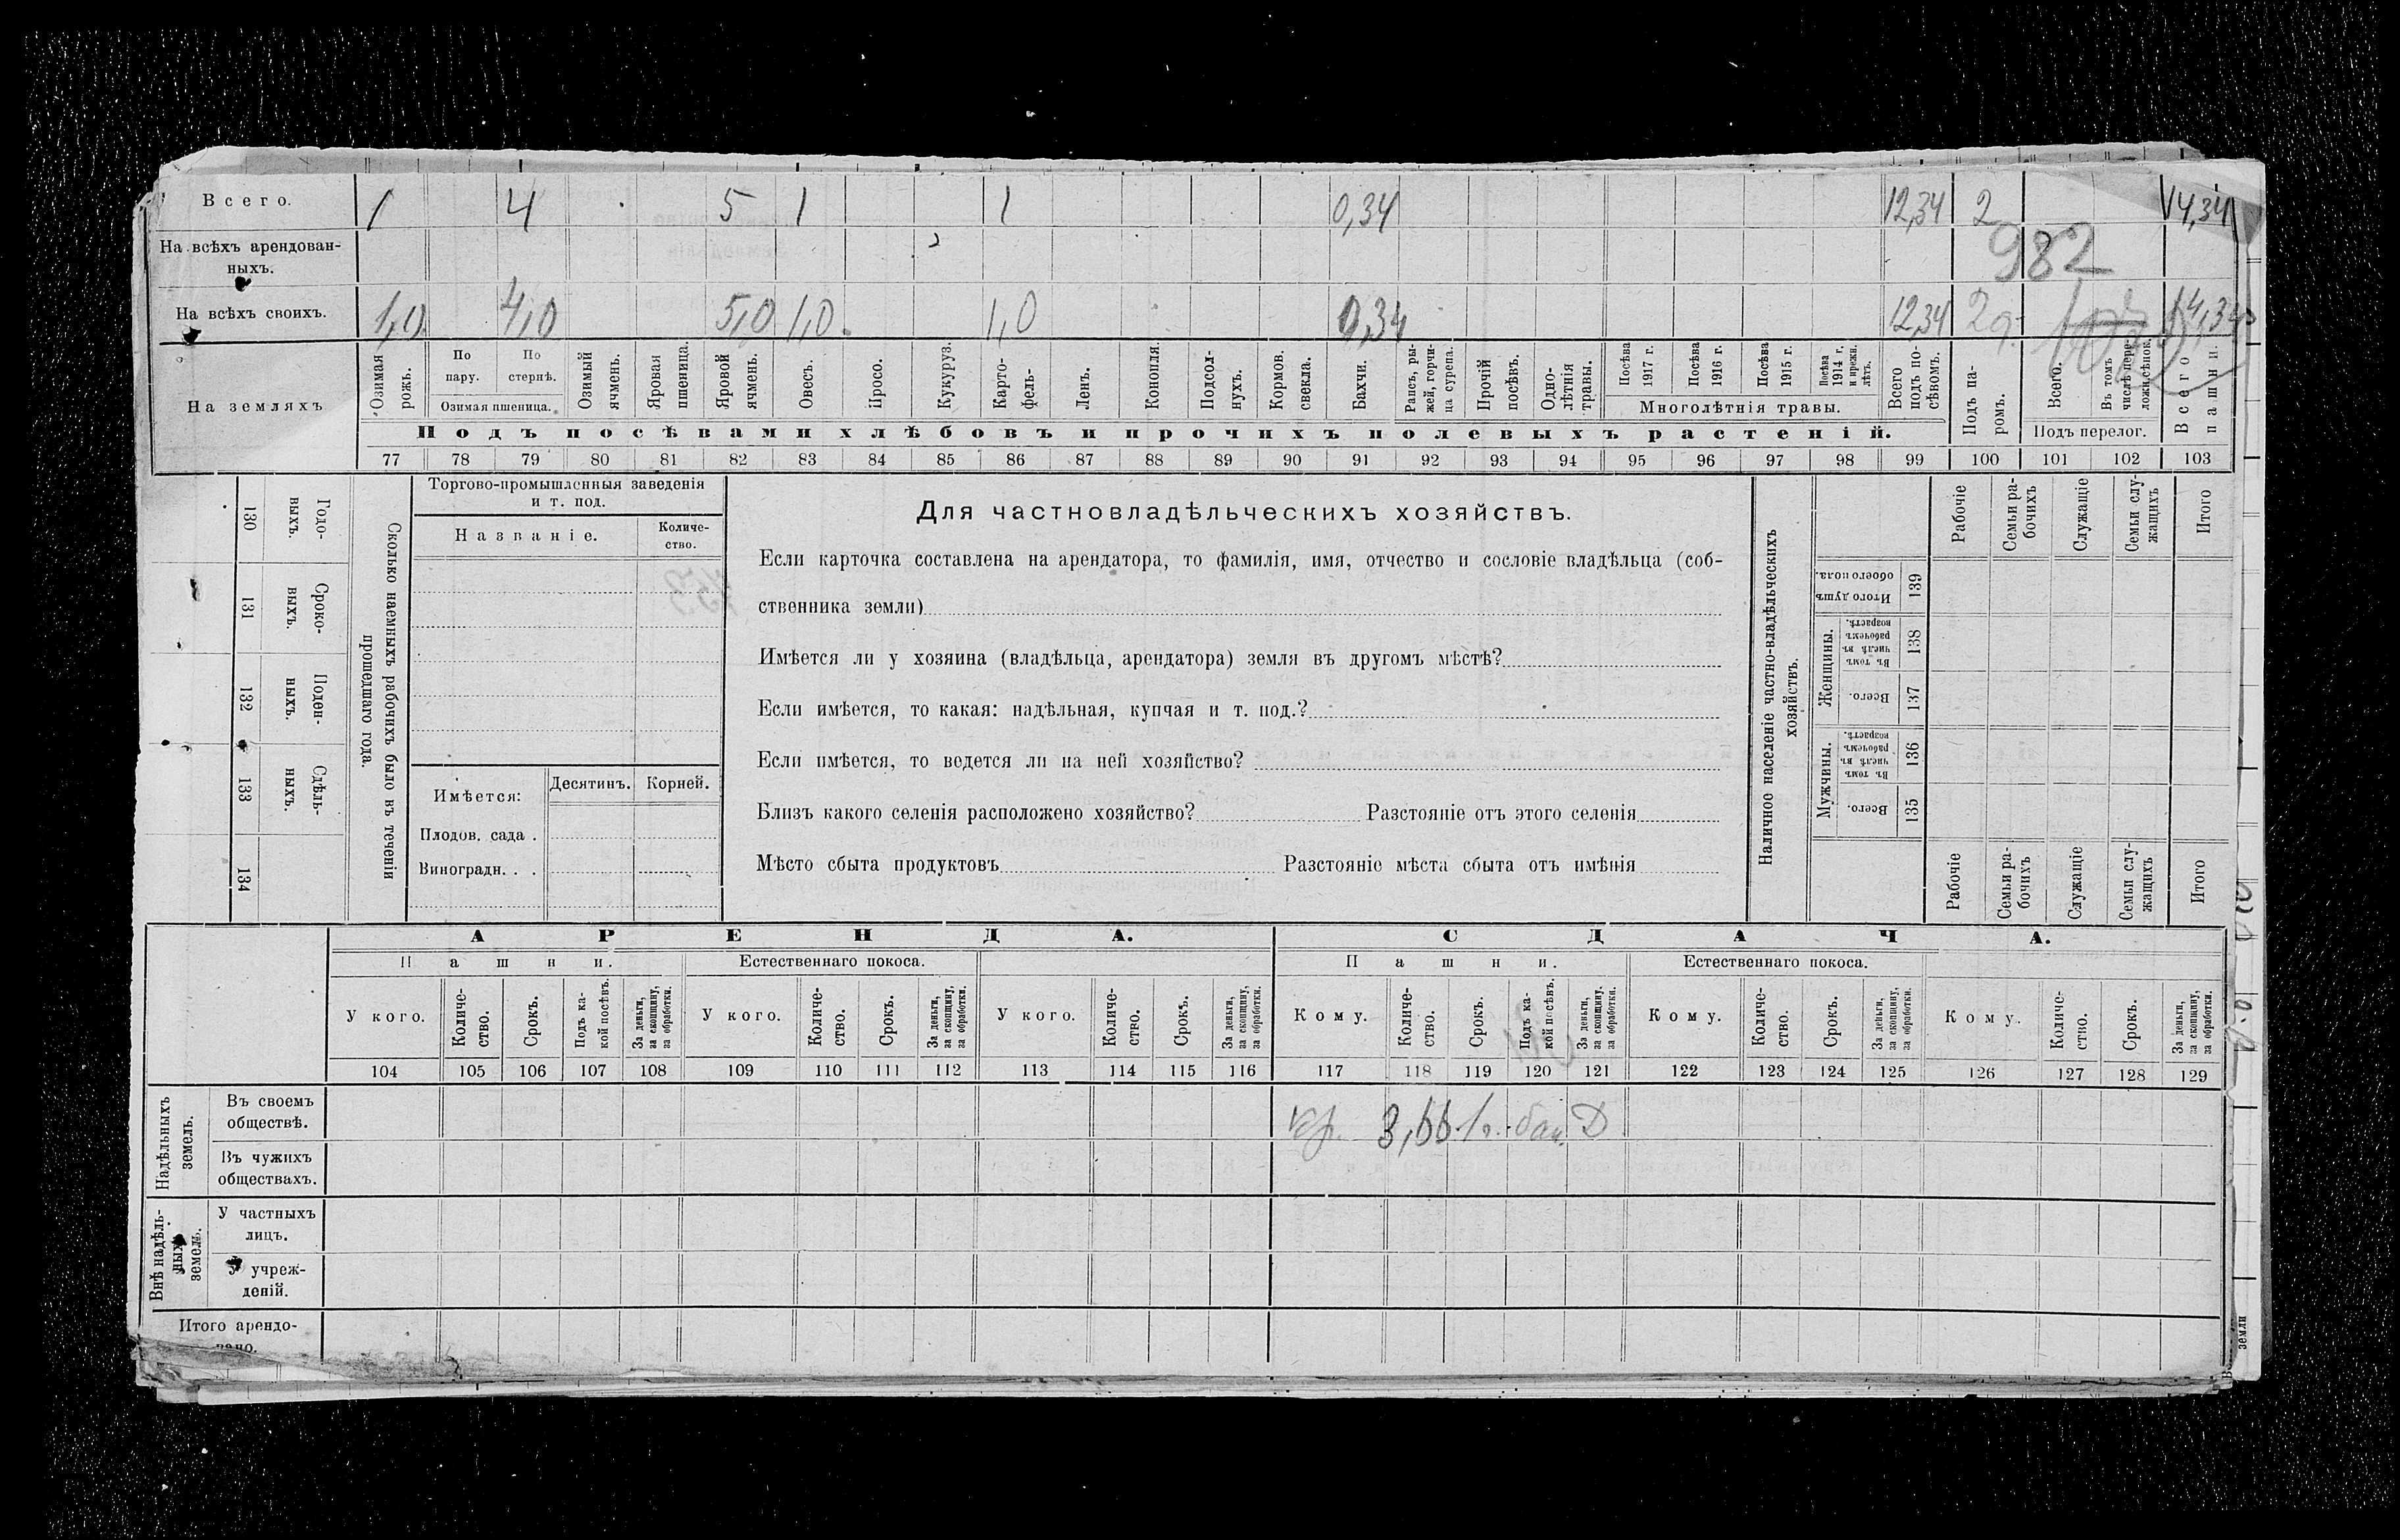 Всего. 1 4 5 1 1 0,34 12,34 2 14,34
На всѣхъ арендован-
ныхъ.
982
На всѣхъ своихъ. 1,0 4,0 5,0 1,0 1,0 0,34 12,34 14,34
На земляхъ
Озимая рожь.
По пару.
По стернѣ.
Озимая пшеница.
Озимый ячмень.
Яровая пшеница.
Яровой ячмень.
Овесъ.
Просо.
Кукуруз.
Карто-
фель.
Ленъ.
Конопля.
Подсол-
нухъ.
Кормов. свекла.
Бахчи.
Рапсъ, ры-
жей, горчи-
ца сурепа.
Прочій посѣвъ.
Одно-
лѣтнія
травы.
Посѣва 1917 г.
Посѣва 1916 г.
Посѣва 1915 г.
Посѣва 1914 г. и прежн. лѣтъ.
Многолѣтнія травы.
Всего подъ по-
сѣвомъ.
Подъ посѣвами хлѣбовъ и прочихъ полевыхъ растеній.
Подъ па-
ромъ.
Всего.
Въ томъ
числѣ пере-
Подъ перелог.
Всего пашни.
77 78 79 80 81 82 83 84 85 86 87 88 89 90 91 92 93 94 95 96 97 98 99 100 101 102 103
130 Годо-
выхъ.
131 Сроко-
выхъ.
132 Поден-
ныхъ.
133 Сдѣль-
ныхъ.
134
Сколько наемныхъ рабочихъ было въ теченіи
прошедшаго года.
Торгово-промышленныя заведенія
и т. под.
Названіе.
Количе-
ство.
Имѣется: Десятинъ. Корней.
Плодов. сада .
Виноградн. . .
Для частновладѣльческихъ хозяйствъ.
Если карточка составлена на арендатора, то фамилія, имя, отчество и сословіе владѣльца (соб-
ственника земли)
Имѣется ли у хозяина (владѣльца, арендатора) земля въ другомъ мѣстѣ?
Если имѣется, то какая: надѣльная, купчая и т. под.?
Если имѣется, то ведется ли на ней хозяйство?
Близъ какого селенія расположено хозяйство? Разстояніе отъ этого селенія
Мѣсто сбыта продуктовъ Разстояніе мѣста сбыта отъ имѣнія
Наличное населеніе частно-владѣльческихъ
хозяйствъ.
Рабочіе
Семьи ра-
бочихъ
Служащіе
Семьи слу-
жащихъ
Итого
Итого душъ
обоего пола.
139
Женщины.
Въ томъ
числѣ въ
рабочемъ
возрастѣ.
138
Всего.
137
Мужчины.
Въ томъ
числѣ въ
рабочемъ
возрастѣ.
136
Всего.
135
Рабочіе
Семьи ра-
бочихъ
Служащіе
Семьи слу-
жащихъ
Итого
АРЕНДА. СДАЧА.
Пашни. Естественнаго покоса. Пашни. Естественнаго покоса.
У кого.
Количе-
ство.
Срокъ.
Подъ ка-
кой посѣвъ.
За деньги,
за скопщину,
за обработки.
У кого.
Количе-
ство.
Срокъ.
За деньги,
за скопщину,
за обработки.
У кого.
Количе-
ство.
Срокъ.
За деньги,
за скопщину,
за обработки.
Кому.
Количе-
ство.
Срокъ.
Подъ ка-
кой посѣвъ.
За деньги,
за скопщину,
за обработки.
Кому.
Количе-
ство.
Срокъ.
За деньги,
за скопщину,
за обработки.
Кому.
Количе-
ство.
Срокъ.
За деньги,
за скопщину,
за обработки.
104 105 106 107 108 109 110 111 112 113 114 115 116 117 118 119 120 121 122 123 124 125 126 127 128 129
Надѣльныхъ
земель.
Въ своемъ
обществѣ.
кр. 3,66 1г. Д
Въ чужихъ
обществахъ.
Внѣ надѣль-
ныхъ
земель.
У частныхъ
лицъ.
У учреж-
деній.
Итого арендо-
вано.
земли